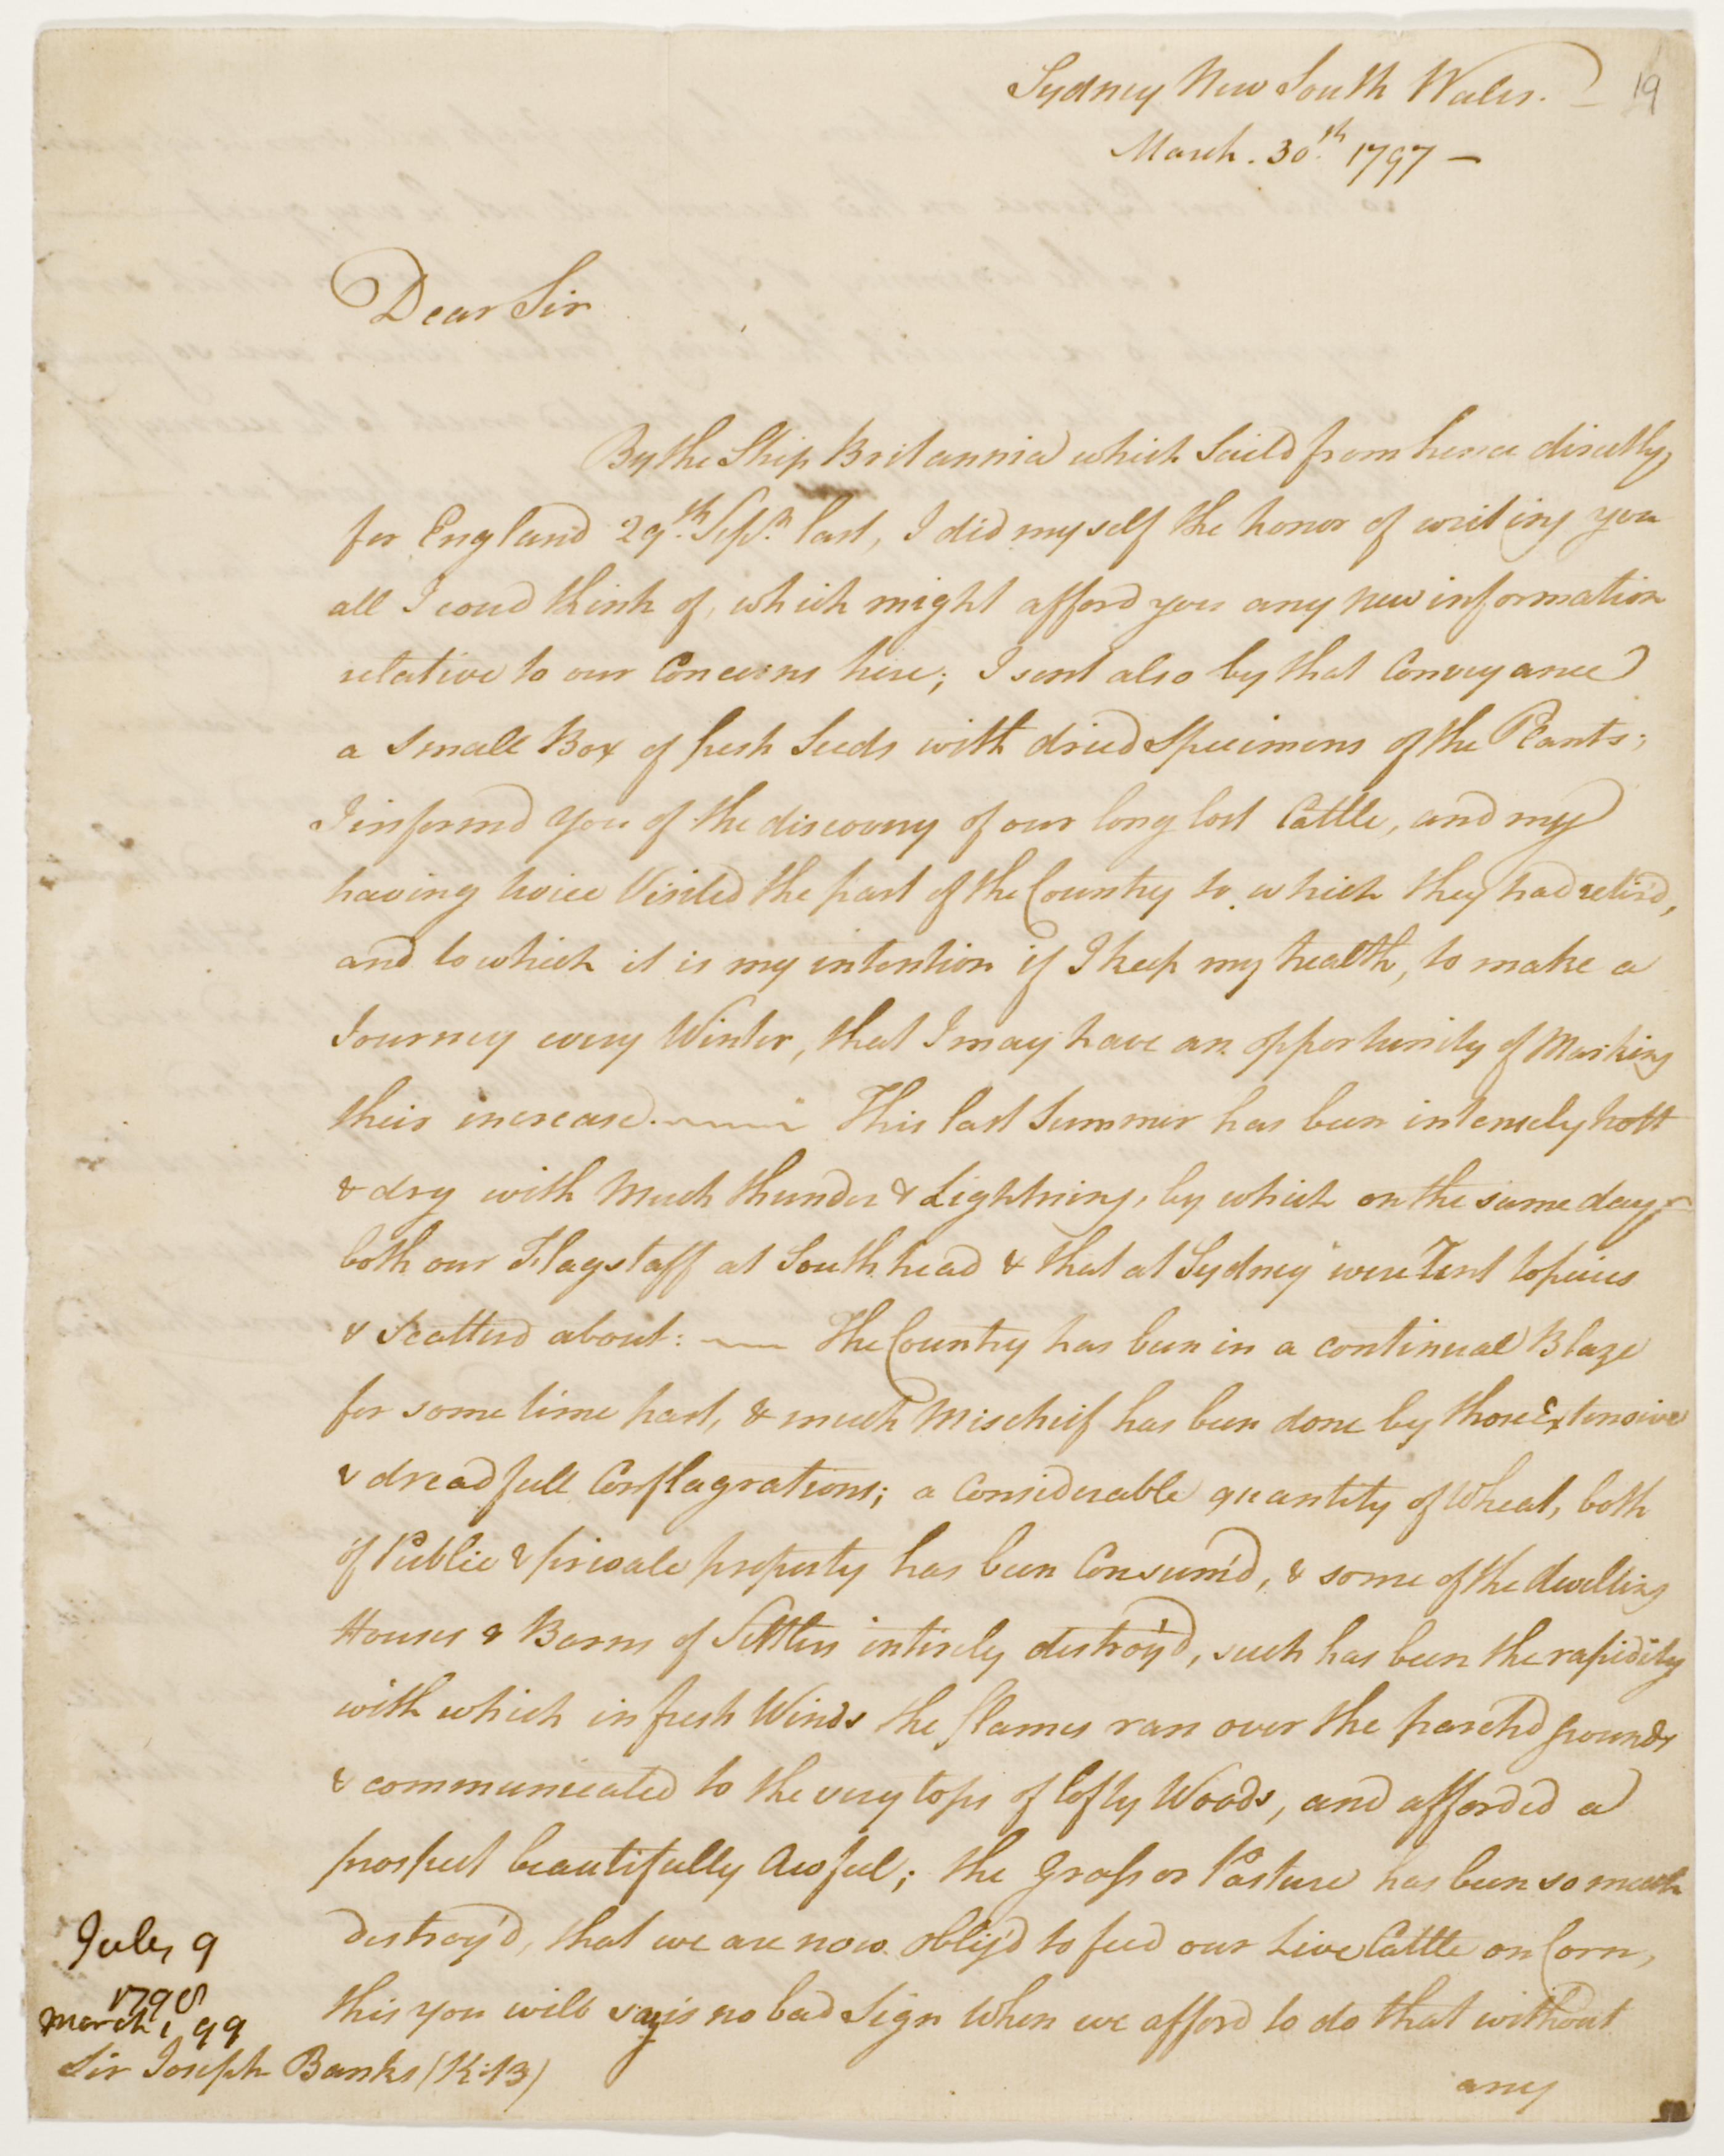 Sydney New South Wales. 19
March. 30.th 1797 —
Dear Sir
By the Ship Britannia which Saild from hence directly
for England 29.th Sepr. last, I did myself the honor of writing you
all I coud think of, which might afford you any new information
relative to our Concerns here; I sent also by that Conveyance
a Small Box of fresh Seeds with dried Specimens of the Plants;
I informd you of the discovery of our long lost Cattle, and my
having twice Visited the part of the Country to which they had retir'd,
and to which it is my intention if I keep my health, to make a
Journey every Winter, that I may have an opportunity of Marking
their increase. —— This last Summer has been intensely hott
& dry with Much thunder & Lightning, by which on the same day
both our Flagstaff at South head & that at Sydney were Rent to peices
& Scatterd about: —— The Country has been in a continual Blaze
for some time past, & much Mischeif has been done by those Extensive
& dreadfull Conflagrations; a Considerable quantity of Wheat, both
of Public & private property has been Consum'd, & some of the dwelling
Houses & Barns of Settlers intirely destroy'd, such has been the rapidity
with which in fresh Winds the flames ran over the parch'd grounds
& communicated to the very tops of lofty Woods, and afforded a
prospect beautifully Awful; the Grass or Pasture has been so much
destroy'd, that we are now oblig'd to feed our Live Cattle on Corn,
this you will say is no bad Sign When we afford to do that without
any
July 9
1798
March 1, 99
Sir Joseph Banks (K:13)